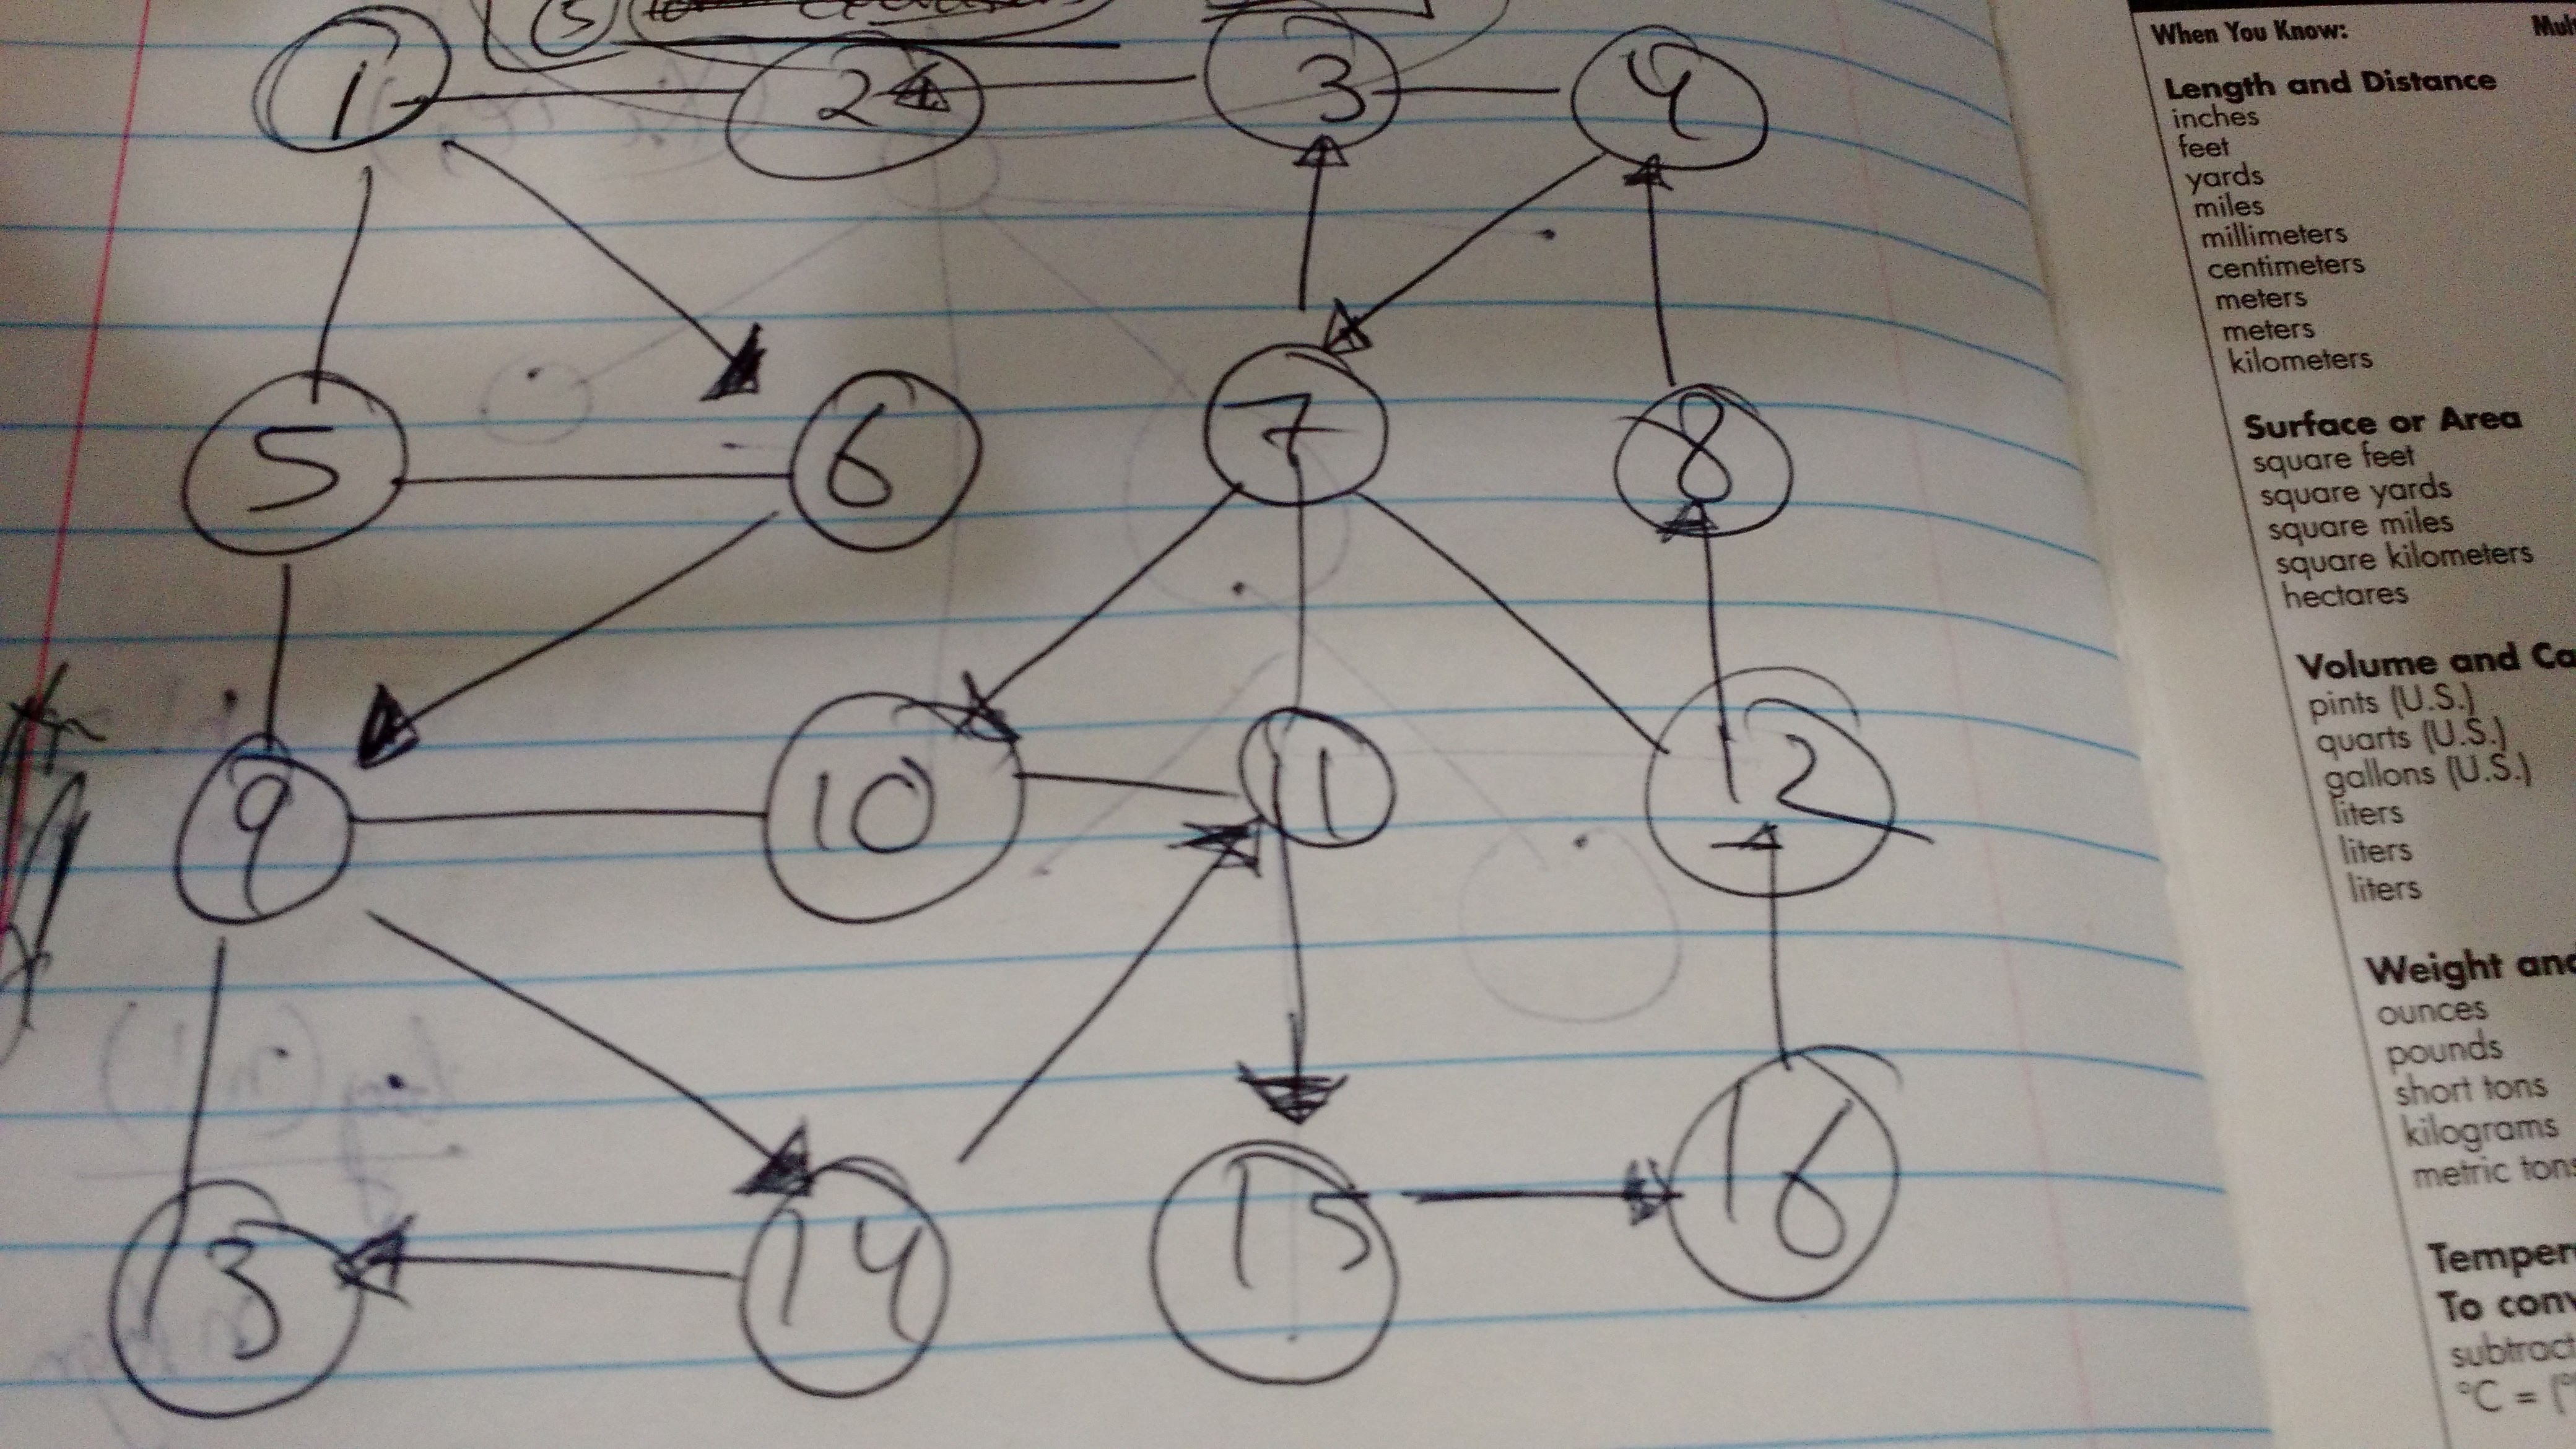 1 2 3 4
5 6 7 8
9 10 11 12
13 14 15 16
When You Know:
Length and Distance
inches
feet
yards
miles
millimeters
centimeters
meters
meters
kilometers
Surface or Area
square feet
square yards
square miles
square kilometers
hectares
Volume and Ca
pints (U.S.)
quarts (U.S.)
gallons (U.S.)
liters
liters
liters
Weight and
ounces
pounds
short tons
kilograms
metric tons
Temper
To conv
subtract
°C = (°